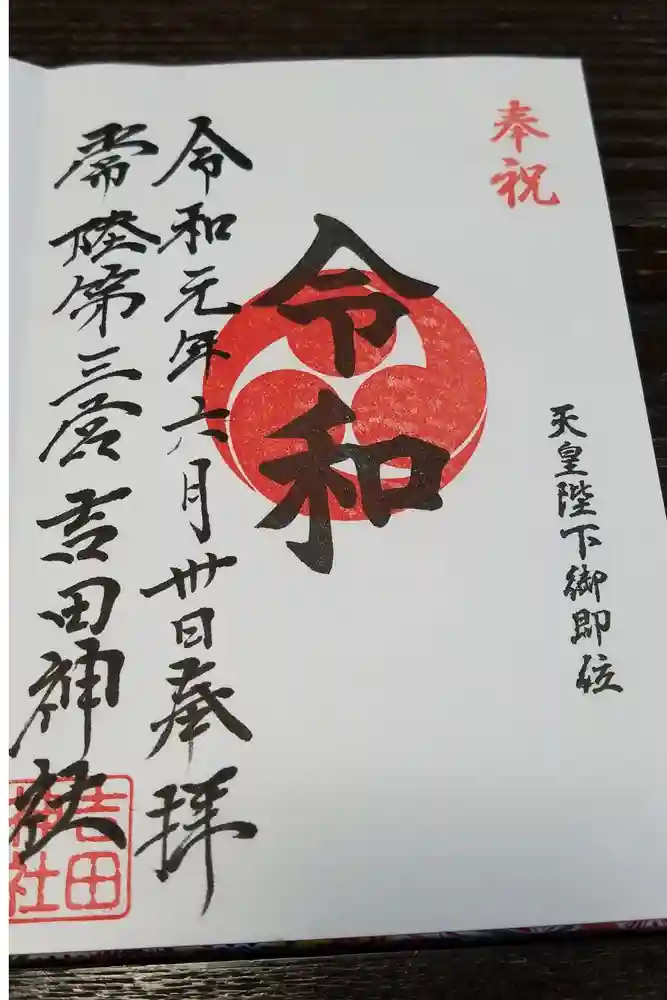 奉祝
天皇陛下御即位
令和
令和元年六月卅日奉拝
常陸第三宮吉田神社
吉田
神社